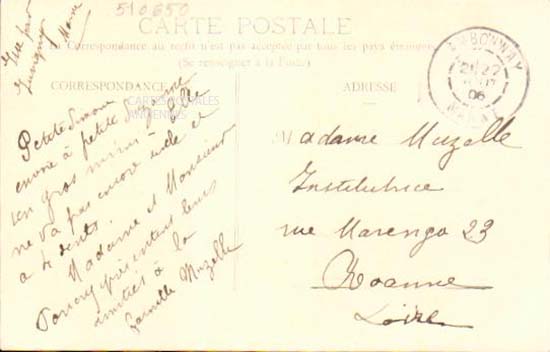 510650
CARTE POSTALE
La Correspondance au recto n'est pas acceptée par tous les pays étrangers
(Se renseigner à la Poste)
Marne
CORRESPONDANCE
ADRESSE
CARTES POSTALES
ANCIENNES
AMBONNAY
06
MARNE
Petite Simone
envoie à petite Suzanne
un gros mimi. Elle
ne va pas encore seule et
a 4 dents.
Madame et Monsieur
présentent leurs
amitiés à la
famille Muzelle
Madame Muzelle
Institutrice
rue Marengo 23
Roanne
Loire